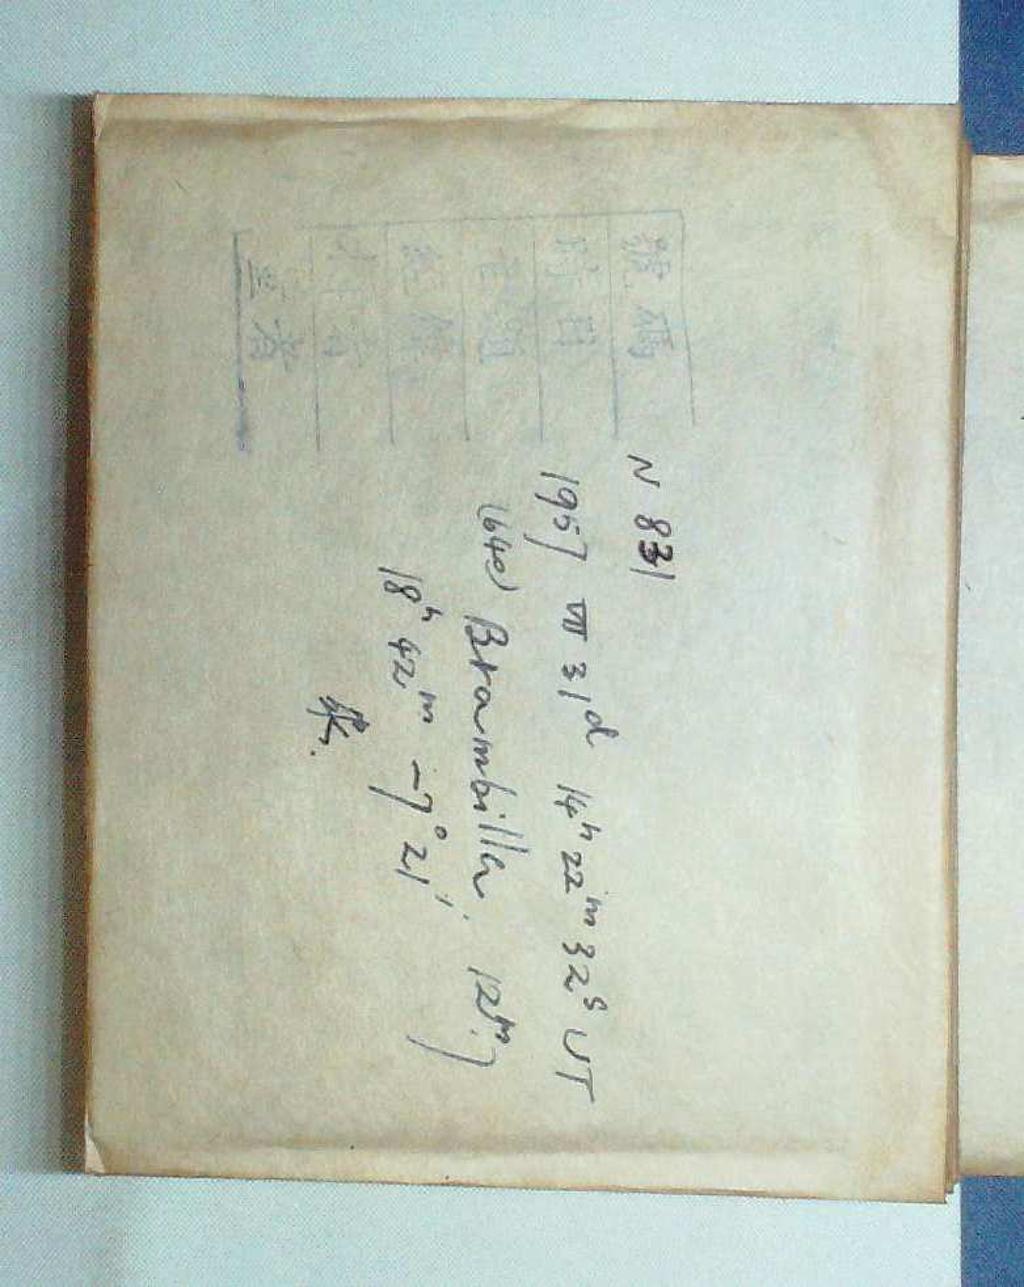 號碼
時日
star題
經緯
N 831
1957 VII 31d 14h 22m 32s UT
(640) Brambilla, 12m.7
18h 42m -7° 21'
张.